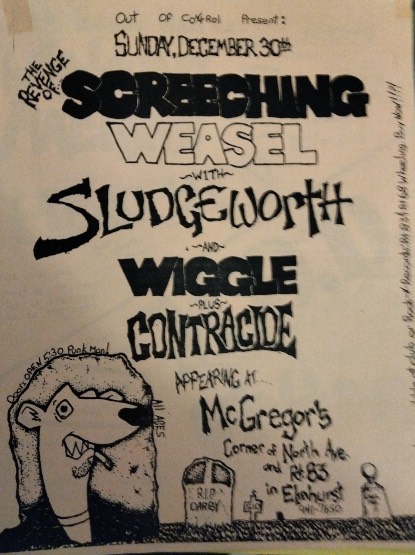 Out Of Control Present:
SUNDAY, DECEMBER 30th
THE
REVENGE
OF...
SCREECHING
WEASEL
~WITH~
SLUDGEWORTH
~AND~
WIGGLE
~PLUS~
CONTRACIDE
APPEARING AT...
McGregor's
Corner of North Ave.
and Rt 83
in Elmhurst
941-7650
Doors OPEN 5:30 Punk Man!
All AGES
R.I.P.
DARBY
Wheeling. Buy Now!!!!